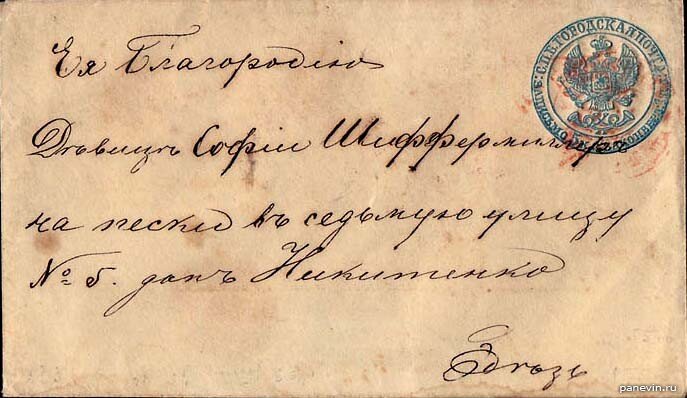 Ея Благородію
Дѣвицѣ Софіи Шиффермиллеръ
на пески въ седьмую улицу
№ 5. домъ Никитенко
Здѣсь
СПБ. ГОРОДСКАЯ ПОЧТА
panevin.ru